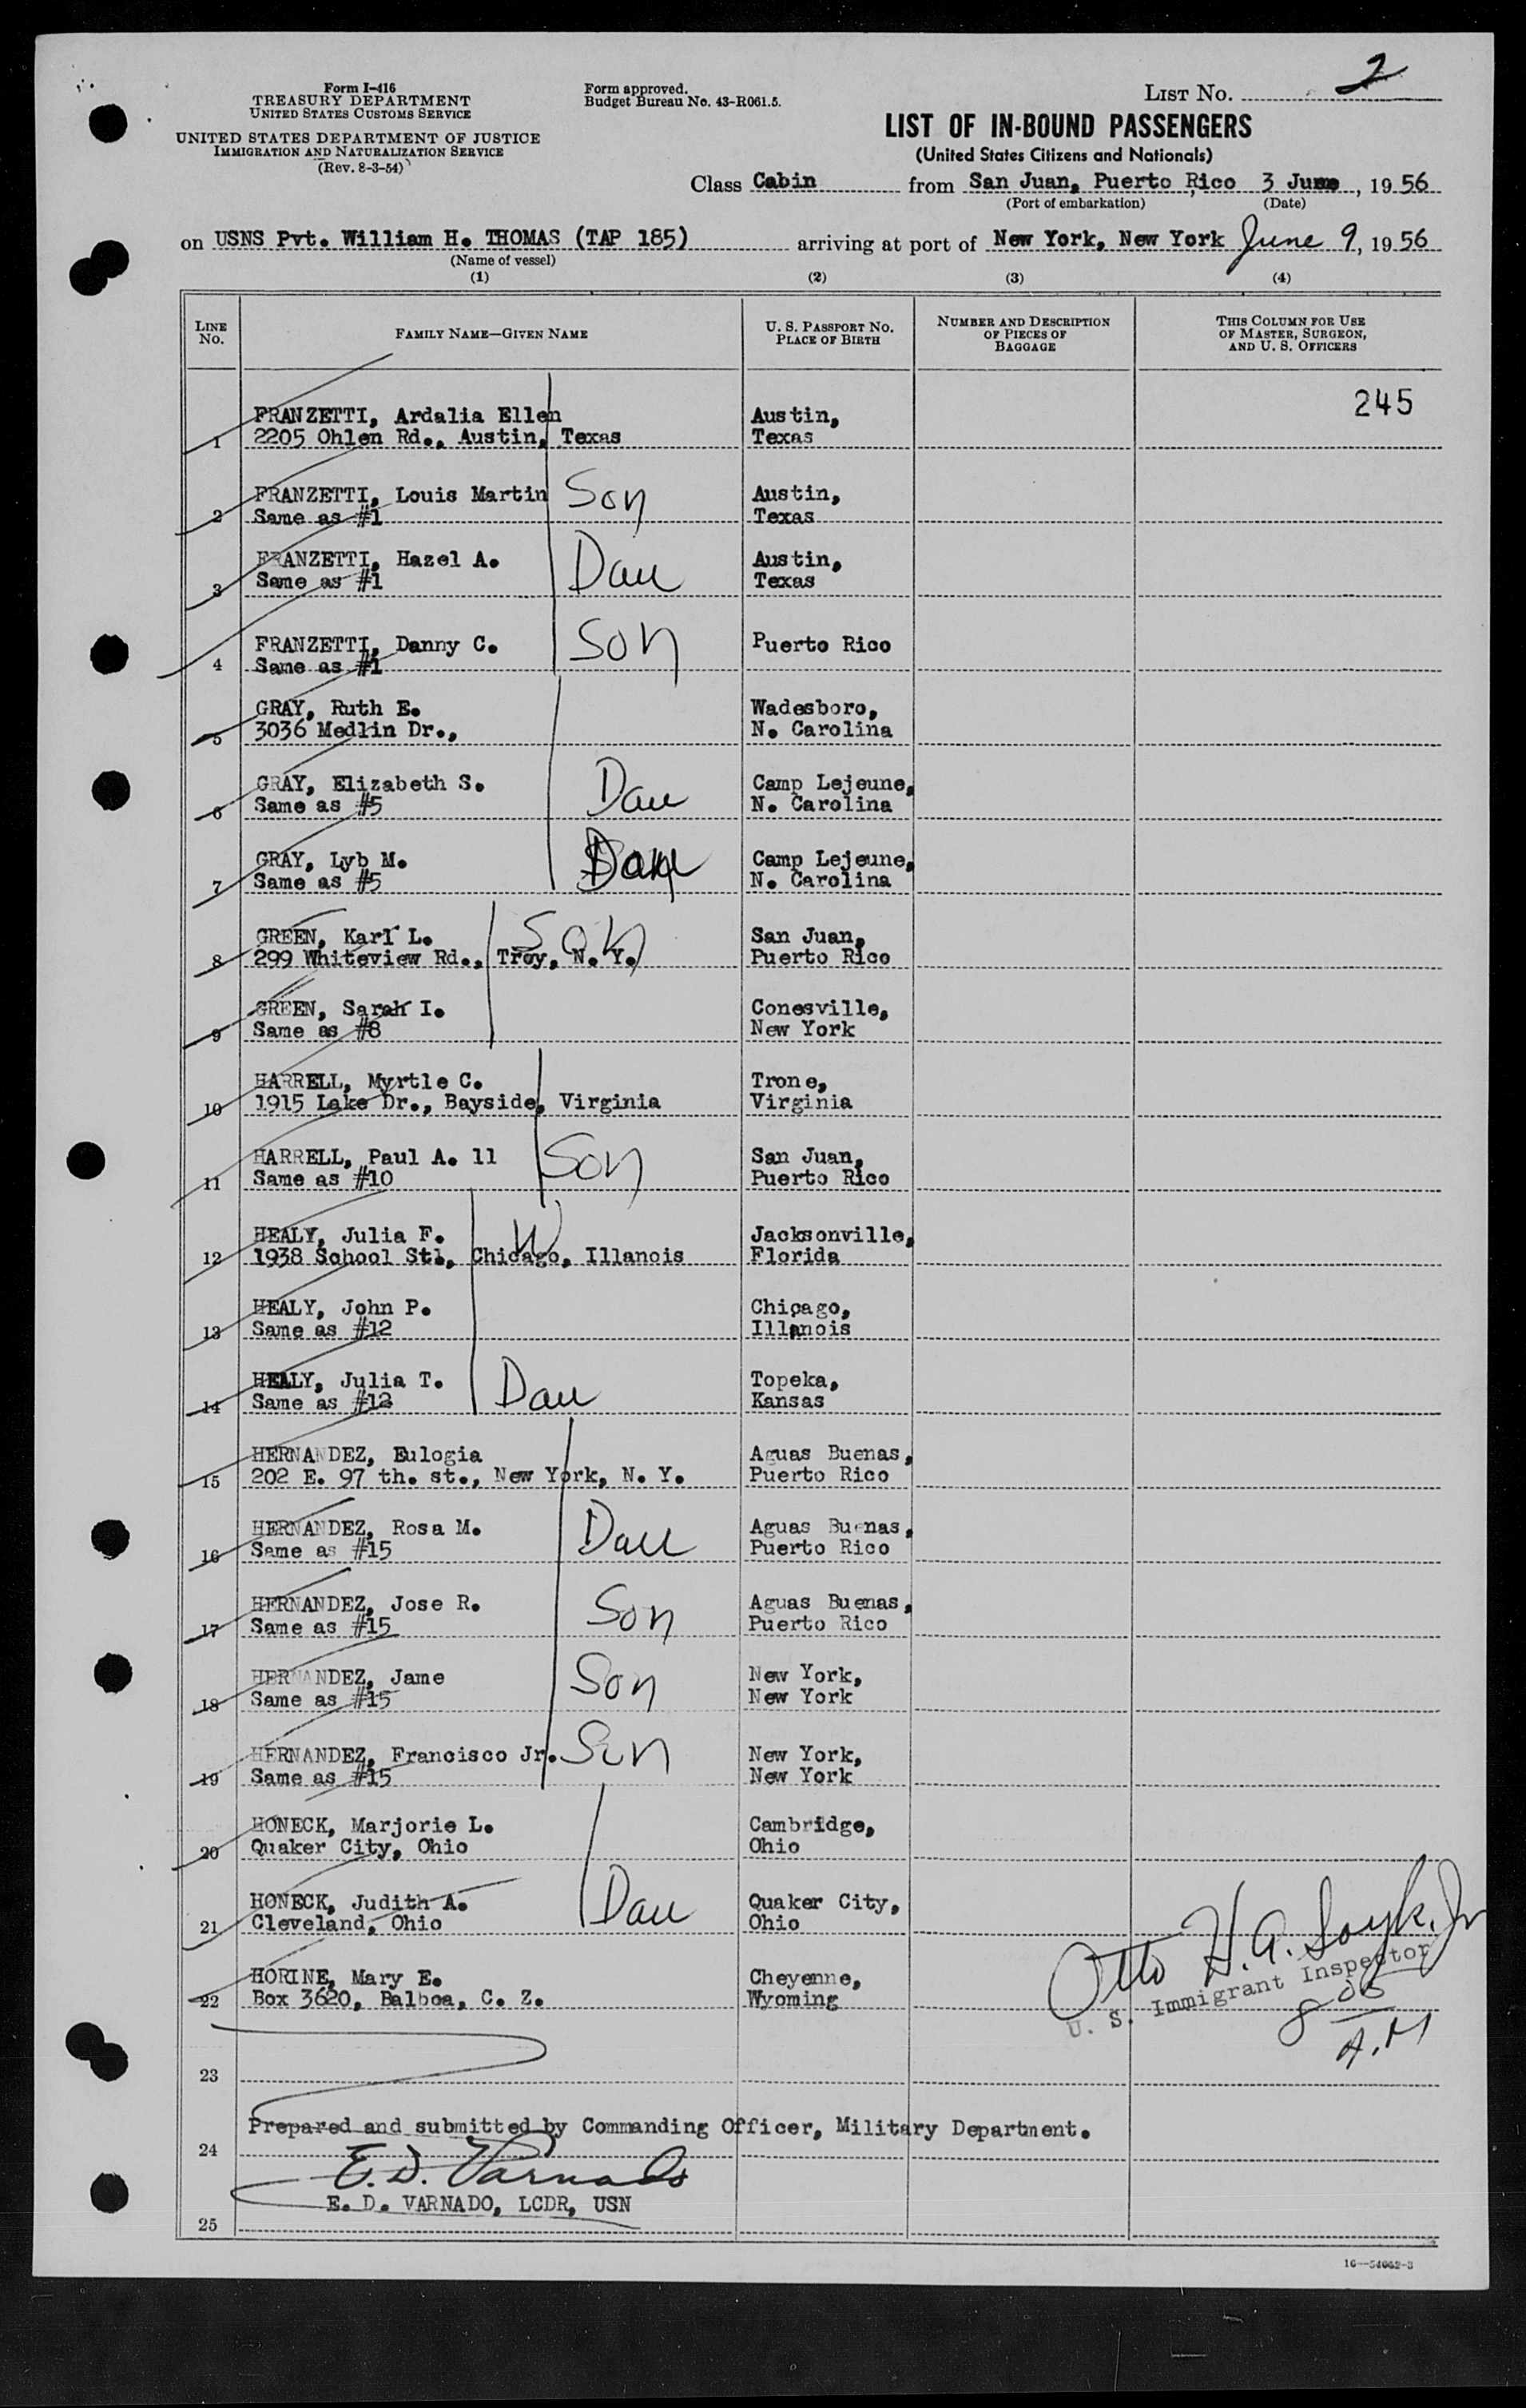 Form I-416
TREASURY DEPARTMENT
UNITED STATES CUSTOMS SERVICE
UNITED STATES DEPARTMENT OF JUSTICE
IMMIGRATION AND NATURALIZATION SERVICE
(Rev. 8-3-54)
Form approved.
Budget Bureau No. 43-R061.5.
LIST NO. 2
LIST OF IN-BOUND PASSENGERS
(United States Citizens and Nationals)
Class Cabin from San Juan, Puerto Rico 3 June, 1956
(Port of embarkation) (Date)
on USNS Pvt. William H. THOMAS (TAP 185) arriving at port of New York, New York June 9, 1956
(Name of vessel)
(1) (2) (3) (4)
LINE NO. FAMILY NAME—GIVEN NAME U. S. PASSPORT NO. PLACE OF BIRTH NUMBER AND DESCRIPTION OF PIECES OF BAGGAGE THIS COLUMN FOR USE OF MASTER, SURGEON, AND U. S. OFFICERS
245
FRANZETTI, Ardalia Ellen Austin,
1 2205 Ohlen Rd., Austin, Texas Texas
FRANZETTI, Louis Martin Son Austin,
2 Same as #1 Texas
FRANZETTI, Hazel A. Dau Austin,
3 Same as #1 Texas
FRANZETTI, Danny C. Son Puerto Rico
4 Same as #1
GRAY, Ruth E. Wadesboro,
5 3036 Medlin Dr., N. Carolina
GRAY, Elizabeth S. Dau Camp Lejeune,
6 Same as #5 N. Carolina
GRAY, Lyb M. Dau Camp Lejeune,
7 Same as #5 N. Carolina
GREEN, Karl L. Son San Juan,
8 299 Whiteview Rd., Troy, N. Y. Puerto Rico
GREEN, Sarah I. Conesville,
9 Same as #8 New York
HARRELL, Myrtle C. Trone,
10 1915 Lake Dr., Bayside, Virginia Virginia
HARRELL, Paul A. 11 Son San Juan,
11 Same as #10 Puerto Rico
HEALY, Julia F. W Jacksonville,
12 1938 School St., Chicago, Illanois Florida
HEALY, John P. Chicago,
13 Same as #12 Illanois
HEALY, Julia T. Dau Topeka,
14 Same as #12 Kansas
HERNANDEZ, Eulogia Aguas Buenas,
15 202 E. 97 th. st., New York, N. Y. Puerto Rico
HERNANDEZ, Rosa M. Dau Aguas Buenas,
16 Same as #15 Puerto Rico
HERNANDEZ, Jose R. Son Aguas Buenas,
17 Same as #15 Puerto Rico
HERNANDEZ, Jame Son New York,
18 Same as #15 New York
HERNANDEZ, Francisco Jr. Son New York,
19 Same as #15 New York
HONECK, Marjorie L. Cambridge,
20 Quaker City, Ohio Ohio
HONECK, Judith A. Dau Quaker City,
21 Cleveland, Ohio Ohio
HORINE, Mary E. Cheyenne,
22 Box 3620, Balboa, C. Z. Wyoming
Otto H. A.
U. S. Immigrant Inspector
A.M
23
Prepared and submitted by Commanding Officer, Military Department.
24
E. D. Varnado
E. D. VARNADO, LCDR, USN
25